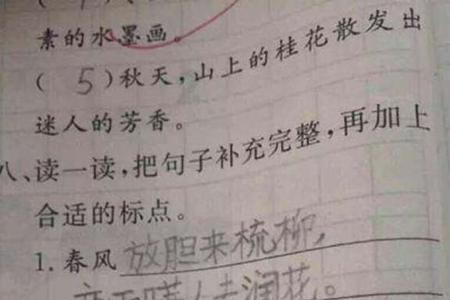 素的水墨画。
( 5 )秋天,山上的桂花散发出
迷人的芳香。
八、读一读,把句子补充完整,再加上
合适的标点。
1. 春风放胆来梳柳,
润花。